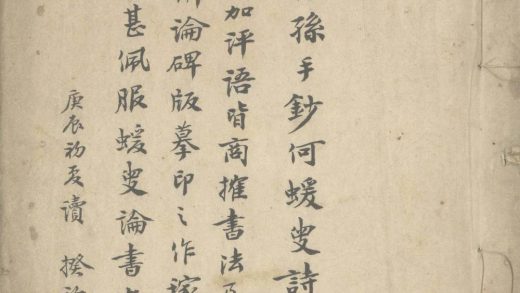 孫手鈔何蝯叟詩
加評語皆商搉書法
論碑版摹印之作
甚佩服蝯叟論書
庚辰初夏讀 揆